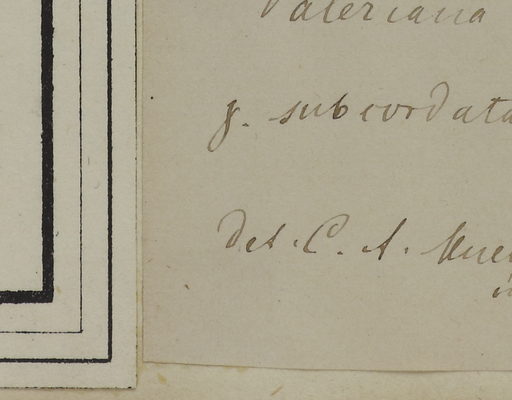 Valeriana
γ. subcordata
det. C. A. Mue